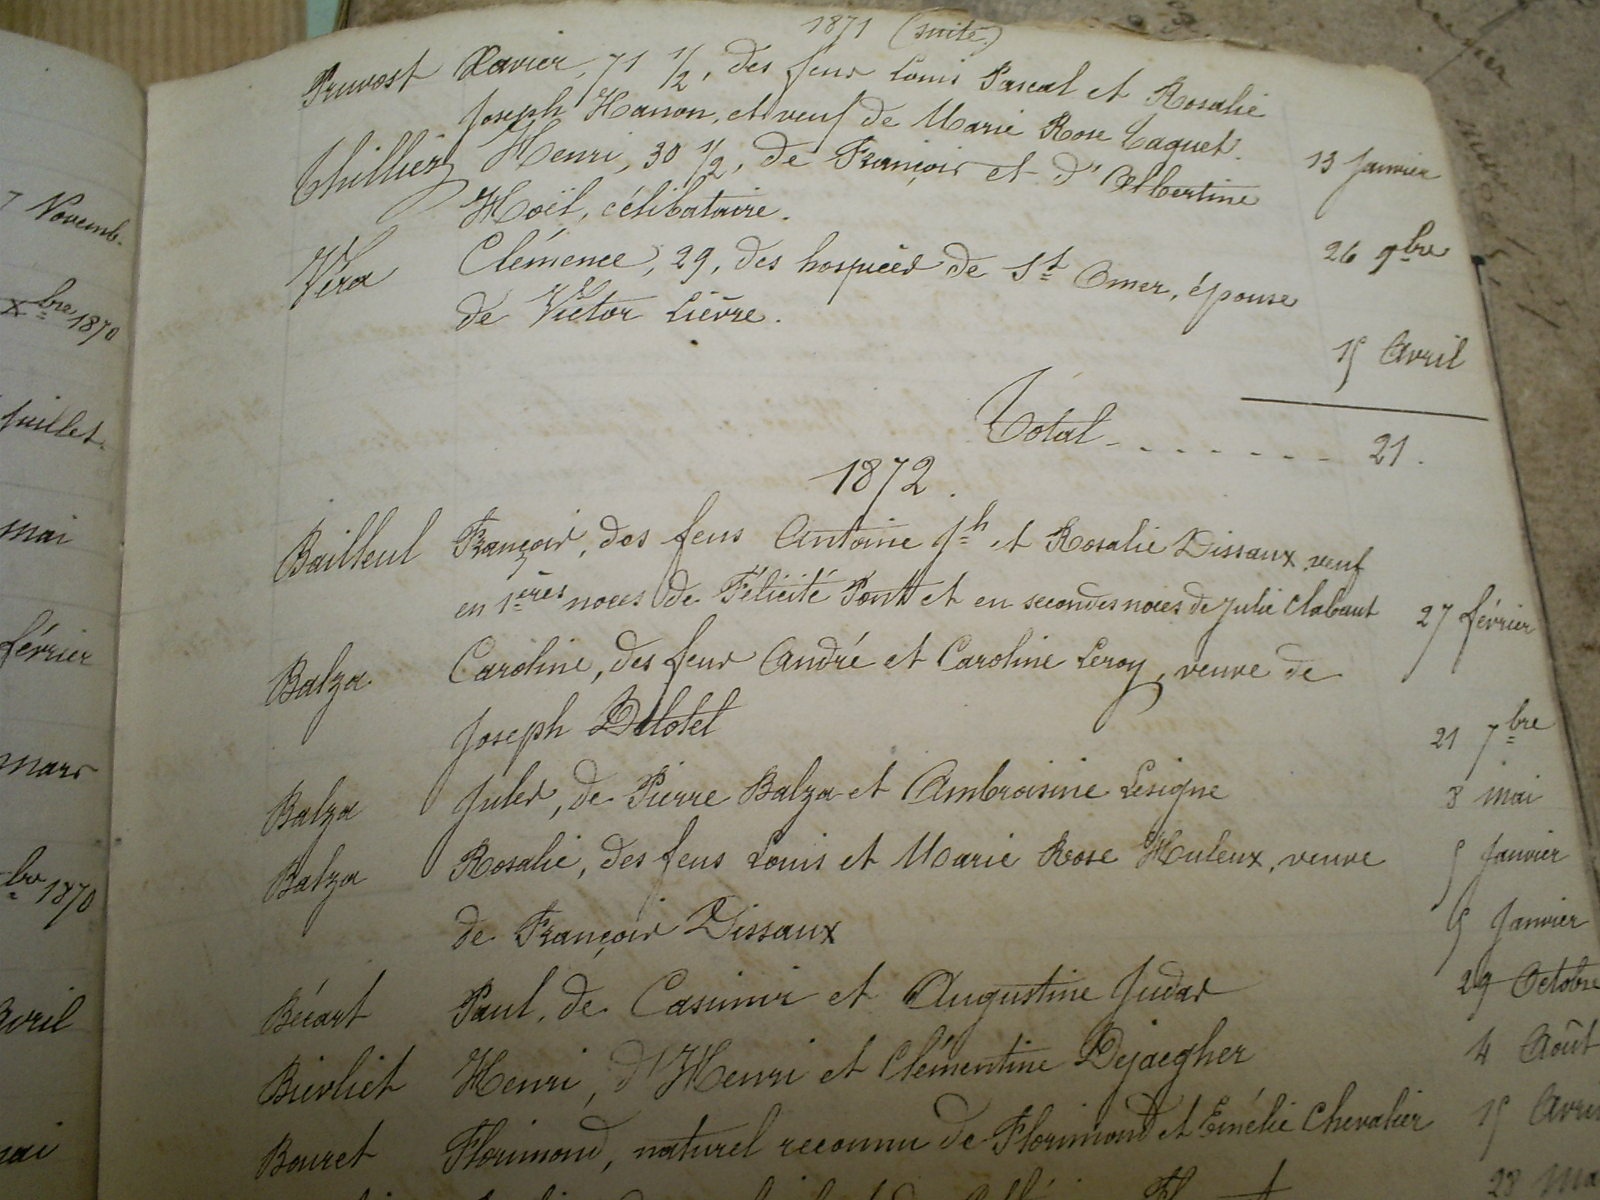 1871 (suite)
Pruvost Xavier, 71 1/2, des feus Louis Pascal et Rosalie
Joseph Hanon, et veuf de Marie Rose Caquet. 13 Janvier
Thilliez Henri, 30 1/2, de François et d'Albertine
Hoël, célibataire. 26 9bre
Véra Clémence, 29, des hospices de St Omer, épouse
de Victor Lièvre. 15 Avril
Total - - - - - - - 21.
1872.
Bailleul François, des feus Antoine Jh et Rosalie Dissaux, veuf
en 1ères noces de Félicité Pont et en secondes noces de Julie Clabaut 27 février
Balza Caroline, des feus André et Caroline Leroy, veuve de
Joseph Delotel 21 7bre
Balza Jules, de Pierre Balza et Ambroisine Lesigne 8 mai
Balza Rosalie, des feus Louis et Marie Rose Huleux, veuve 5 Janvier
de François Dissaux 5 Janvier
Bécart Paul, de Casimir et Augustine Judas 29 Octobre
Bievliet Henri, d'Henri et Clémentine Dejaegher 4 Août
Bouret Florimond, naturel reconnu de Florimond et Emélie Chevalier 15 Avri
28 Ma
7 Novemb.
Xbre 1870
Juillet
mai
février
mars
bre 1870
avril
mai